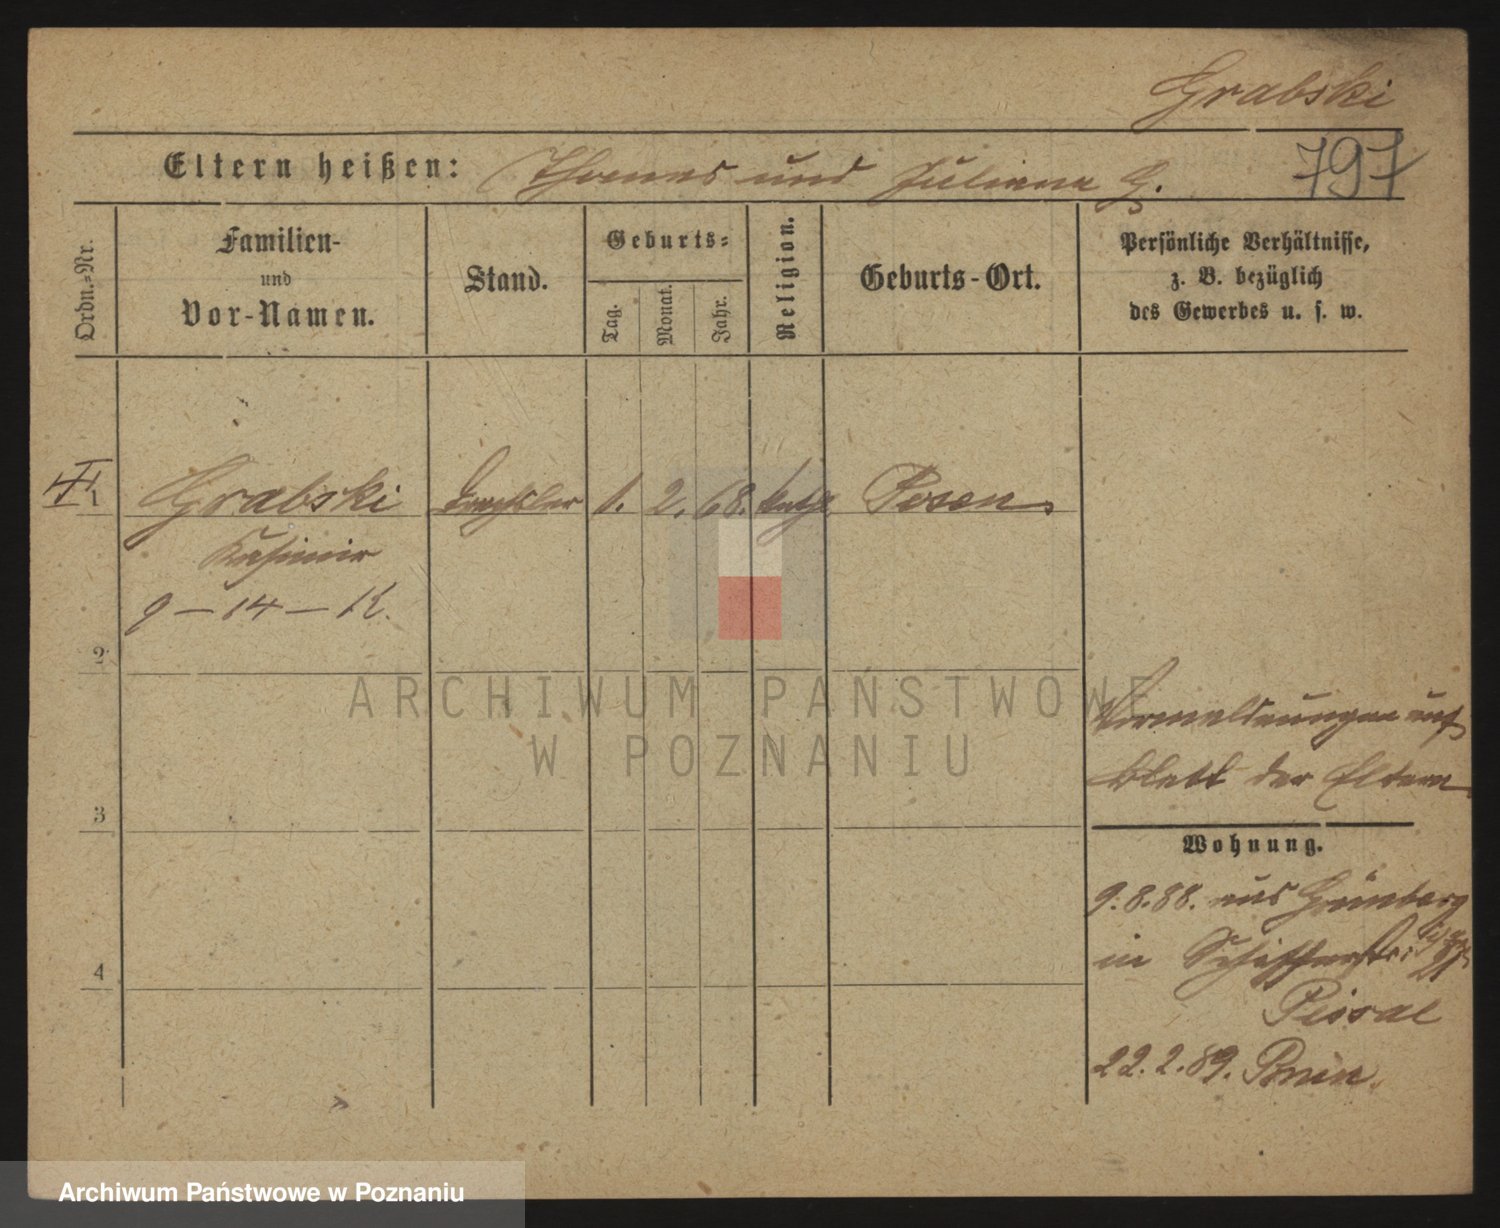 Grabski
797
Eltern heißen: Thomas und Juliana G.
Ordn.-Nr.
Familien-
und
Vor-Namen.
Stand.
Geburts-
Tag.
Monat.
Jahr.
Religion.
Geburts-Ort.
Persönliche Verhältnisse,
z. B. bezüglich
des Gewerbes u. s. w.
1 Grabski 1. 2. 68. kath. Posen
Kasimir
9 — 14 — K.
2
3
4
Vormeldungen auf
Blatt der Eltern
Wohnung.
9.8.88. aus Grünberg
in Schifferstr: 21
22.2.89. Pnin
ARCHIWUM PAŃSTWOWE
W POZNANIU
Archiwum Państwowe w Poznaniu